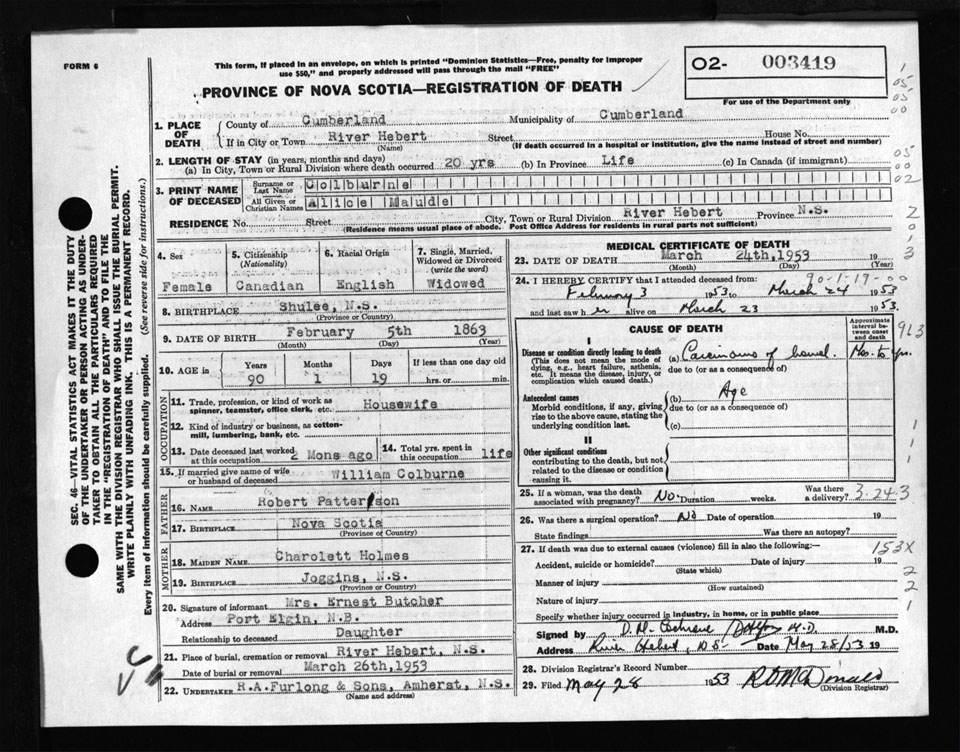 FORM 6
This form, if placed in an envelope, on which is printed "Dominion Statistics—Free, penalty for improper
use $50," and properly addressed will pass through the mail "FREE"
O2- 003419
For use of the Department only
PROVINCE OF NOVA SCOTIA—REGISTRATION OF DEATH
1. PLACE OF DEATH
County of Cumberland Municipality of Cumberland
If in City or Town River Hebert Street House No.
(Name) (If death occurred in a hospital or institution, give the name instead of street and number)
2. LENGTH OF STAY (in years, months and days)
(a) In City, Town or Rural Division where death occurred 20 yrs (b) In Province Life (c) In Canada (if immigrant)
3. PRINT NAME OF DECEASED
Surname or Last Name Colburne
All Given or Christian Names Alice Maude
RESIDENCE No. Street City, Town or Rural Division River Hebert Province N.S.
(Residence means usual place of abode. Post Office Address for residents in rural parts not sufficient)
4. Sex Female
5. Citizenship (Nationality) Canadian
6. Racial Origin English
7. Single, Married, Widowed or Divorced (write the word) Widowed
8. BIRTHPLACE Shulee, N.S.
(Province or Country)
9. DATE OF BIRTH February 5th 1863
(Month) (Day) (Year)
10. AGE in Years Months Days If less than one day old
90 1 19 hrs. or min.
OCCUPATION
11. Trade, profession, or kind of work as
spinner, teamster, office clerk, etc. Housewife
12. Kind of industry or business, as cotton-
mill, lumbering, bank, etc.
13. Date deceased last worked at this occupation 2 Mons ago
14. Total yrs. spent in this occupation life
15. If married give name of wife
or husband of deceased William Colburne
FATHER
16. NAME Robert Patterson
17. BIRTHPLACE Nova Scotia
(Province or Country)
MOTHER
18. MAIDEN NAME Charolett Holmes
19. BIRTHPLACE Joggins, N.S.
(Province or Country)
20. Signature of informant Mrs. Ernest Butcher
Address Port Elgin, N.B.
Relationship to deceased Daughter
21. Place of burial, cremation or removal River Hebert, N.S.
Date of burial or removal March 26th,1953
22. UNDERTAKER R.A.Furlong & Sons, Amherst, N.S.
(Name and address)
MEDICAL CERTIFICATE OF DEATH
23. DATE OF DEATH March 24th,1953
(Month) (Day) (Year)
90-1-19-00
24. I HEREBY CERTIFY that I attended deceased from:
February 3 1953 to March 24 1953
and last saw her alive on March 23 1953.
CAUSE OF DEATH
Approximate interval between onset and death
I
Disease or condition directly leading to death (a) Carcinoma of bowel. Mos. to yrs.
(This does not mean the mode of due to (or as a consequence of)
dying, e.g., heart failure, asthenia,
etc. It means the disease, injury, or
complication which caused death.)
Antecedent causes (b) Age
Morbid conditions, if any, giving due to (or as a consequence of)
rise to the above cause, stating the
underlying condition last. (c)
II
Other significant conditions
contributing to the death, but not
related to the disease or condition
causing it.
25. If a woman, was the death
associated with pregnancy? No. Duration weeks. Was there a delivery? 3-24-3
26. Was there a surgical operation? No Date of operation 19
State findings Was there an autopsy?
27. If death was due to external causes (violence) fill in also the following:— 153X
Accident, suicide or homicide? Date of injury 19
(State which)
Manner of injury
(How sustained)
Nature of injury
Specify whether injury occurred in industry, in home, or in public place
Signed by D. M. Cochrane M.D. M.D.
Address River Hebert, N.S. Date May 28/53 19
28. Division Registrar's Record Number
29. Filed May 28 1953
(Division Registrar)
SEC. 46—VITAL STATISTICS ACT MAKES IT THE DUTY
OF THE UNDERTAKER OR PERSON ACTING AS UNDER-
TAKER TO OBTAIN ALL THE PARTICULARS REQUIRED
IN THE "REGISTRATION OF DEATH" AND TO FILE THE
SAME WITH THE DIVISION REGISTRAR WHO SHALL ISSUE THE BURIAL PERMIT.
WRITE PLAINLY WITH UNFADING INK. THIS IS A PERMANENT RECORD.
Every item of information should be carefully supplied. (See reverse side for instructions.)
1
05
05
00
05
00
02
2
0
1
3
913
1
1
2
2
1